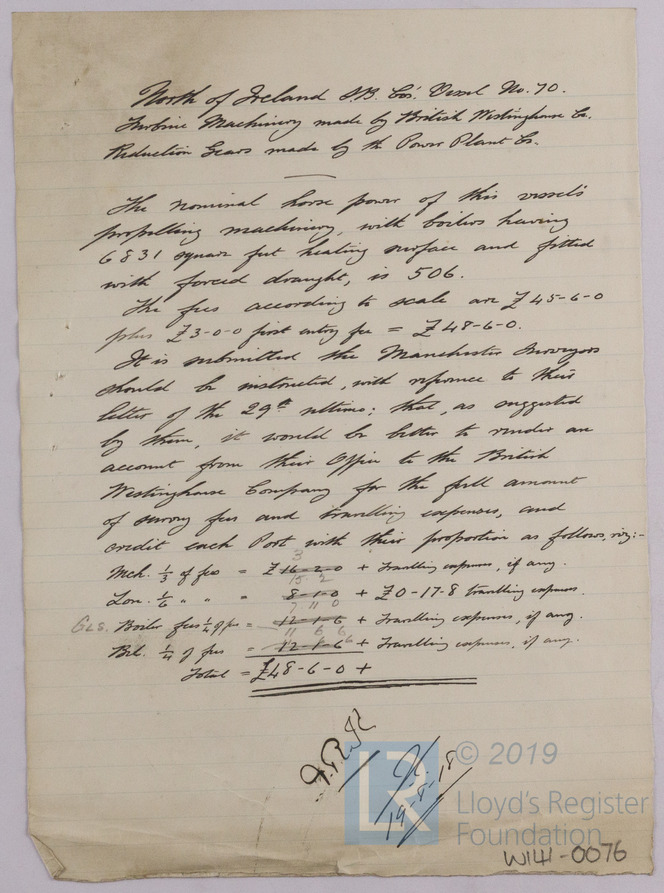 North of Ireland S.B. Cos. Vessel No. 70.
Turbine Machinery made by British Westinghouse Co.
Reduction Gears made by the Power Plant Co.
The nominal horse power of this vessel's
propelling machinery, with boilers having
6831 square feet heating surface and fitted
with forced draught, is 506.
The fees according to scale are £45-6-0
plus £3-0-0 first entry fee = £48-6-0.
It is submitted the Manchester Surveyors
should be instructed, with reference to their
letter of the 29th ultimo; that, as suggested
by them, it would be better to render an
account from their Office to the British
Westinghouse Company for the full amount
of survey fees and travelling expenses, and
credit each Port with their proportion as follows, viz:-
3
Mch. 1/3 of fees = £16-2-0 + Travelling expenses, if any.
15 2
Lon. 1/6 " " = 8-1-0 + £0-17-8 travelling expenses.
7 11 0
Gls. Boiler fees 1/4 of fees = 12-1-6 + Travelling expenses, if any.
11 6 6
Bel. 1/4 of fees = 12-1-6 + Travelling expenses, if any.
Total = £48-6-0 +
19-8-18
© 2019
LR
Lloyd's Register
Foundation
W141-0076